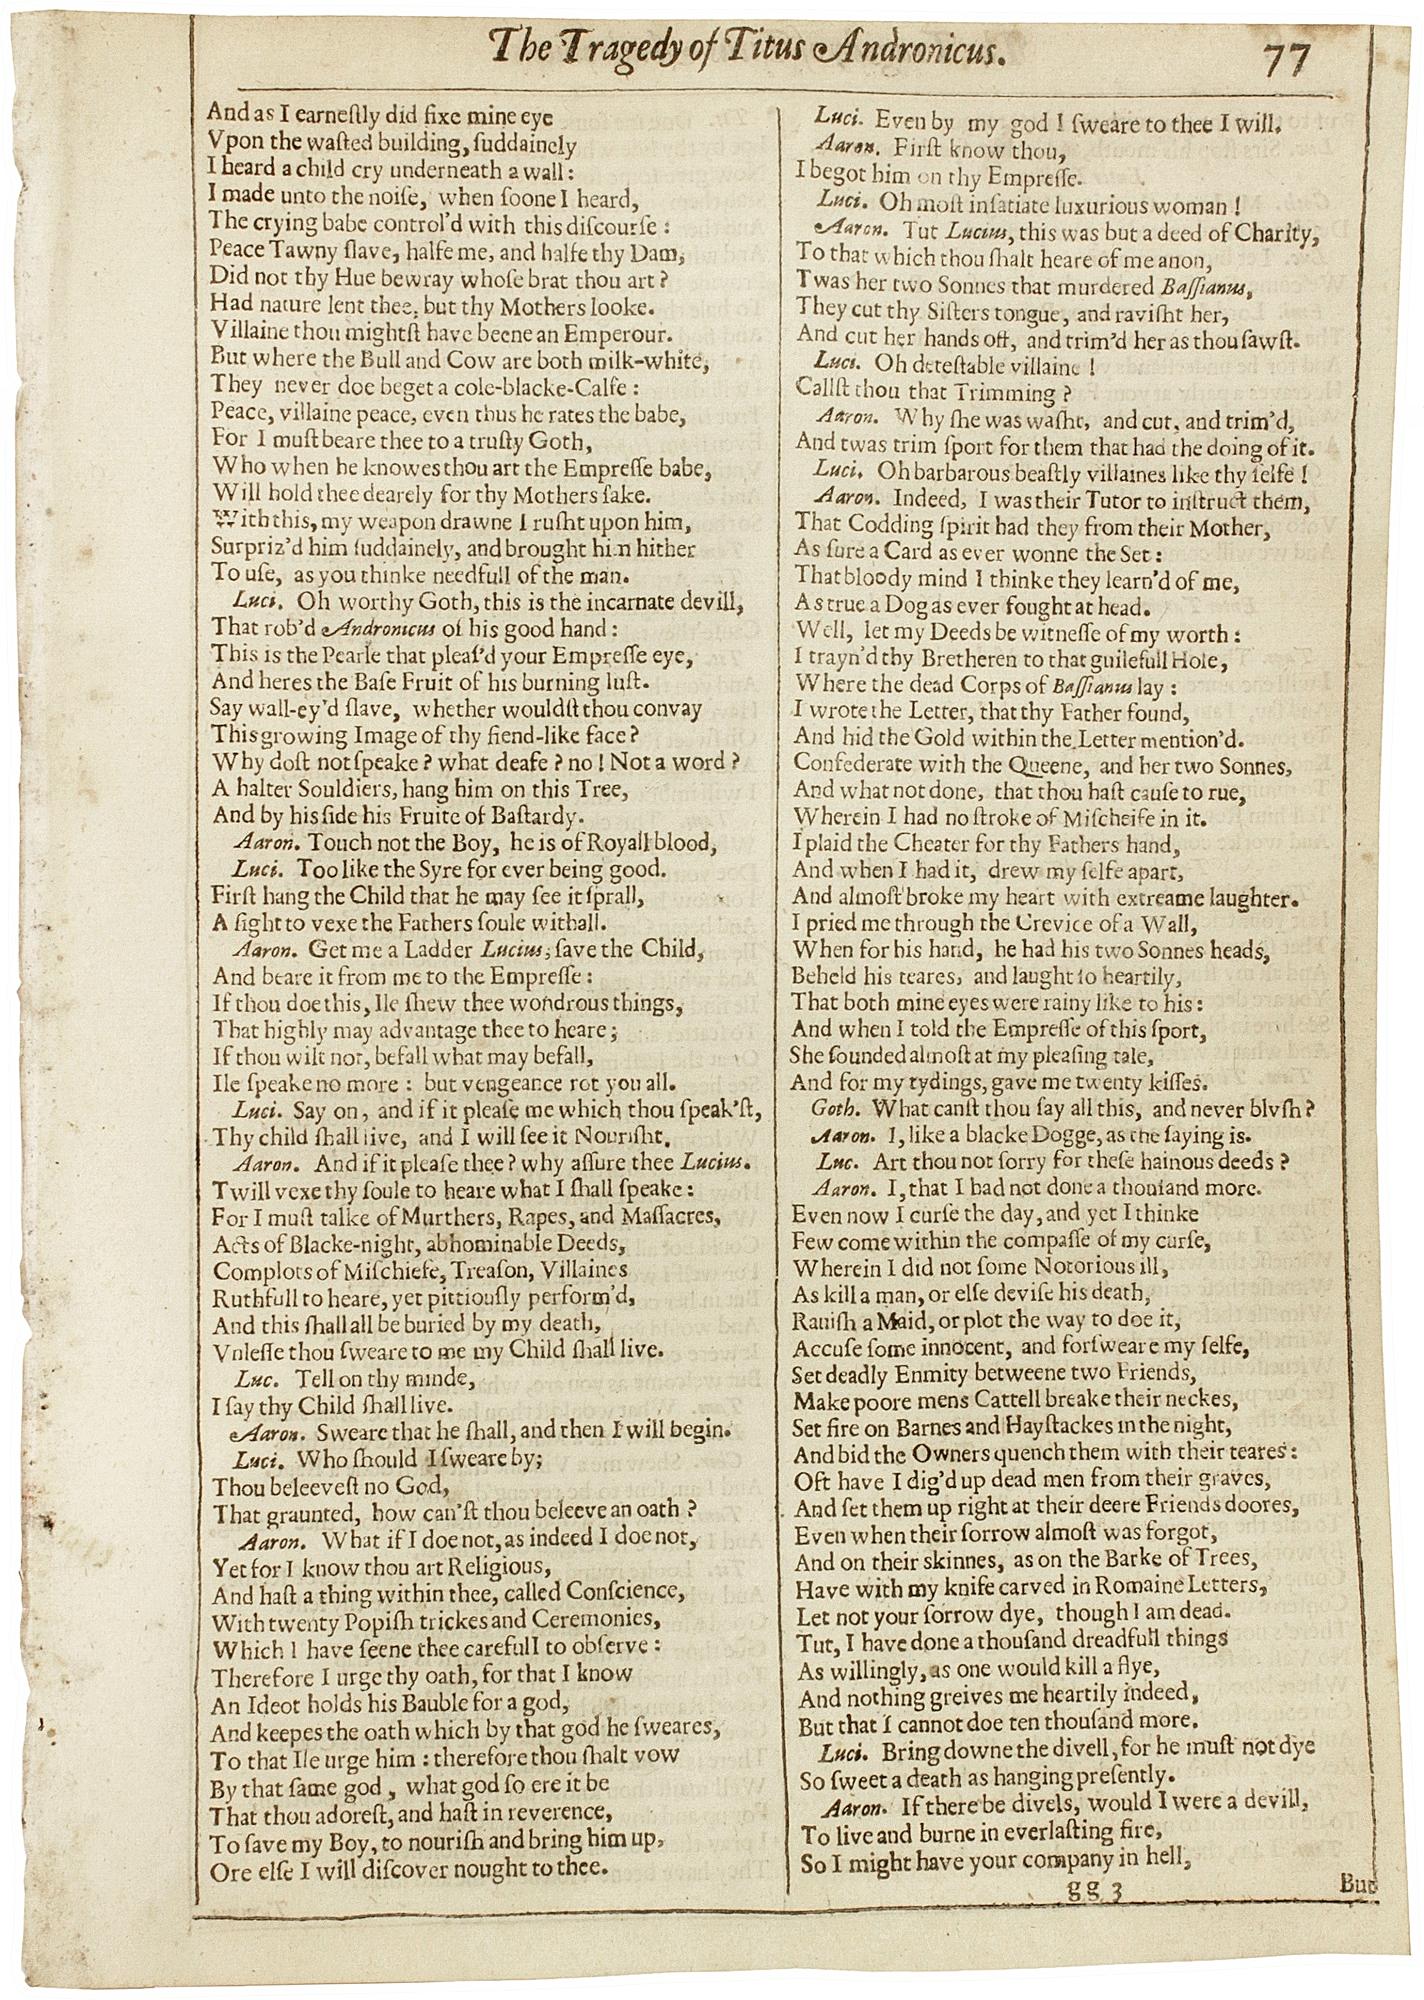 The Tragedy of Titus Andronicus.
77
And as I earneſtly did fixe mine eye
Vpon the waſted building, ſuddainely
I heard a child cry underneath a wall:
I made unto the noiſe, when ſoone I heard,
The crying babe control'd with this diſcourſe:
Peace Tawny ſlave, halfe me, and halfe thy Dam,
Did not thy Hue bewray whoſe brat thou art?
Had nature lent thee, but thy Mothers looke.
Villaine thou mightſt have beene an Emperour.
But where the Bull and Cow are both milk-white,
They never doe beget a cole-blacke-Calfe:
Peace, villaine peace, even thus he rates the babe,
For I muſt beare thee to a truſty Goth,
Who when he knowes thou art the Empreſſe babe,
Will hold thee dearely for thy Mothers ſake.
With this, my weapon drawne I ruſht upon him,
Surpriz'd him ſuddainely, and brought him hither
To uſe, as you thinke needfull of the man.
Luci. Oh worthy Goth, this is the incarnate devill,
That rob'd Andronicus of his good hand:
This is the Pearle that pleaſ'd your Empreſſe eye,
And heres the Baſe Fruit of his burning luſt.
Say wall-ey'd ſlave, whether wouldſt thou convay
This growing Image of thy fiend-like face?
Why doſt not ſpeake? what deafe? no! Not a word?
A halter Souldiers, hang him on this Tree,
And by his ſide his Fruite of Baſtardy.
Aaron. Touch not the Boy, he is of Royall blood,
Luci. Too like the Syre for ever being good.
Firſt hang the Child that he may ſee it ſprall,
A ſight to vexe the Fathers ſoule withall.
Aaron. Get me a Ladder Lucius, ſave the Child,
And beare it from me to the Empreſſe:
If thou doe this, Ile ſhew thee wondrous things,
That highly may advantage thee to heare;
If thou wilt not, befall what may befall,
Ile ſpeake no more: but vengeance rot you all.
Luci. Say on, and if it pleaſe me which thou ſpeak'ſt,
Thy child ſhall live, and I will ſee it Nouriſht.
Aaron. And if it pleaſe thee? why aſſure thee Lucius.
Twill vexe thy ſoule to heare what I ſhall ſpeake:
For I muſt talke of Murthers, Rapes, and Maſſacres,
Acts of Blacke-night, abhominable Deeds,
Complots of Miſchiefe, Treaſon, Villaines
Ruthfull to heare, yet pittiouſly perform'd,
And this ſhall all be buried by my death,
Vnleſſe thou ſweare to me my Child ſhall live.
Luc. Tell on thy minde,
I ſay thy Child ſhall live.
Aaron. Sweare that he ſhall, and then I will begin.
Luci. Who ſhould I ſweare by;
Thou beleeveſt no God,
That graunted, how can'ſt thou beleeve an oath?
Aaron. What if I doe not, as indeed I doe not,
Yet for I know thou art Religious,
And haſt a thing within thee, called Conſcience,
With twenty Popiſh trickes and Ceremonies,
Which I have ſeene thee carefull to obſerve:
Therefore I urge thy oath, for that I know
An Ideot holds his Bauble for a god,
And keepes the oath which by that god he ſweares,
To that Ile urge him: therefore thou ſhalt vow
By that ſame god, what god ſo ere it be
That thou adoreſt, and haſt in reverence,
To ſave my Boy, to nouriſh and bring him up,
Ore elſe I will diſcover nought to thee.
Luci. Even by my god I ſweare to thee I will.
Aaron. Firſt know thou,
I begot him on thy Empreſſe.
Luci. Oh moſt inſatiate luxurious woman!
Aaron. Tut Lucius, this was but a deed of Charity,
To that which thou ſhalt heare of me anon,
Twas her two Sonnes that murdered Baſſianus,
They cut thy Siſters tongue, and raviſht her,
And cut her hands off, and trim'd her as thou ſawſt.
Luci. Oh deteſtable villaine!
Callſt thou that Trimming?
Aaron. Why ſhe was waſht, and cut, and trim'd,
And twas trim ſport for them that had the doing of it.
Luci. Oh barbarous beaſtly villaines like thy ſelfe!
Aaron. Indeed, I was their Tutor to inſtruct them,
That Codding ſpirit had they from their Mother,
As ſure a Card as ever wonne the Set:
That bloody mind I thinke they learn'd of me,
As true a Dog as ever fought at head.
Well, let my Deeds be witneſſe of my worth:
I trayn'd thy Bretheren to that guilefull Hole,
Where the dead Corps of Baſſianus lay:
I wrote the Letter, that thy Father found,
And hid the Gold within the Letter mention'd.
Confederate with the Queene, and her two Sonnes,
And what not done, that thou haſt cauſe to rue,
Wherein I had no ſtroke of Miſcheife in it.
I plaid the Cheater for thy Fathers hand,
And when I had it, drew my ſelfe apart,
And almoſt broke my heart with extreame laughter.
I pried me through the Crevice of a Wall,
When for his hand, he had his two Sonnes heads,
Beheld his teares, and laught ſo heartily,
That both mine eyes were rainy like to his:
And when I told the Empreſſe of this ſport,
She ſounded almoſt at my pleaſing tale,
And for my tydings, gave me twenty kiſſes.
Goth. What canſt thou ſay all this, and never blvſh?
Aaron. I, like a blacke Dogge, as the ſaying is.
Luc. Art thou not ſorry for theſe hainous deeds?
Aaron. I, that I had not done a thouſand more.
Even now I curſe the day, and yet I thinke
Few come within the compaſſe of my curſe,
Wherein I did not ſome Notorious ill,
As kill a man, or elſe deviſe his death,
Rauiſh a Maid, or plot the way to doe it,
Accuſe ſome innocent, and forſweare my ſelfe,
Set deadly Enmity betweene two Friends,
Make poore mens Cattell breake their neckes,
Set fire on Barnes and Hayſtackes in the night,
And bid the Owners quench them with their teares:
Oft have I dig'd up dead men from their graves,
And ſet them up right at their deere Friends doores,
Even when their ſorrow almoſt was forgot,
And on their skinnes, as on the Barke of Trees,
Have with my knife carved in Romaine Letters,
Let not your ſorrow dye, though I am dead.
Tut, I have done a thouſand dreadfull things
As willingly, as one would kill a flye,
And nothing greives me heartily indeed,
But that I cannot doe ten thouſand more.
Luci. Bring downe the divell, for he muſt not dye
So ſweet a death as hanging preſently.
Aaron. If there be divels, would I were a devill,
To live and burne in everlaſting fire,
So I might have your company in hell,
gg 3
But